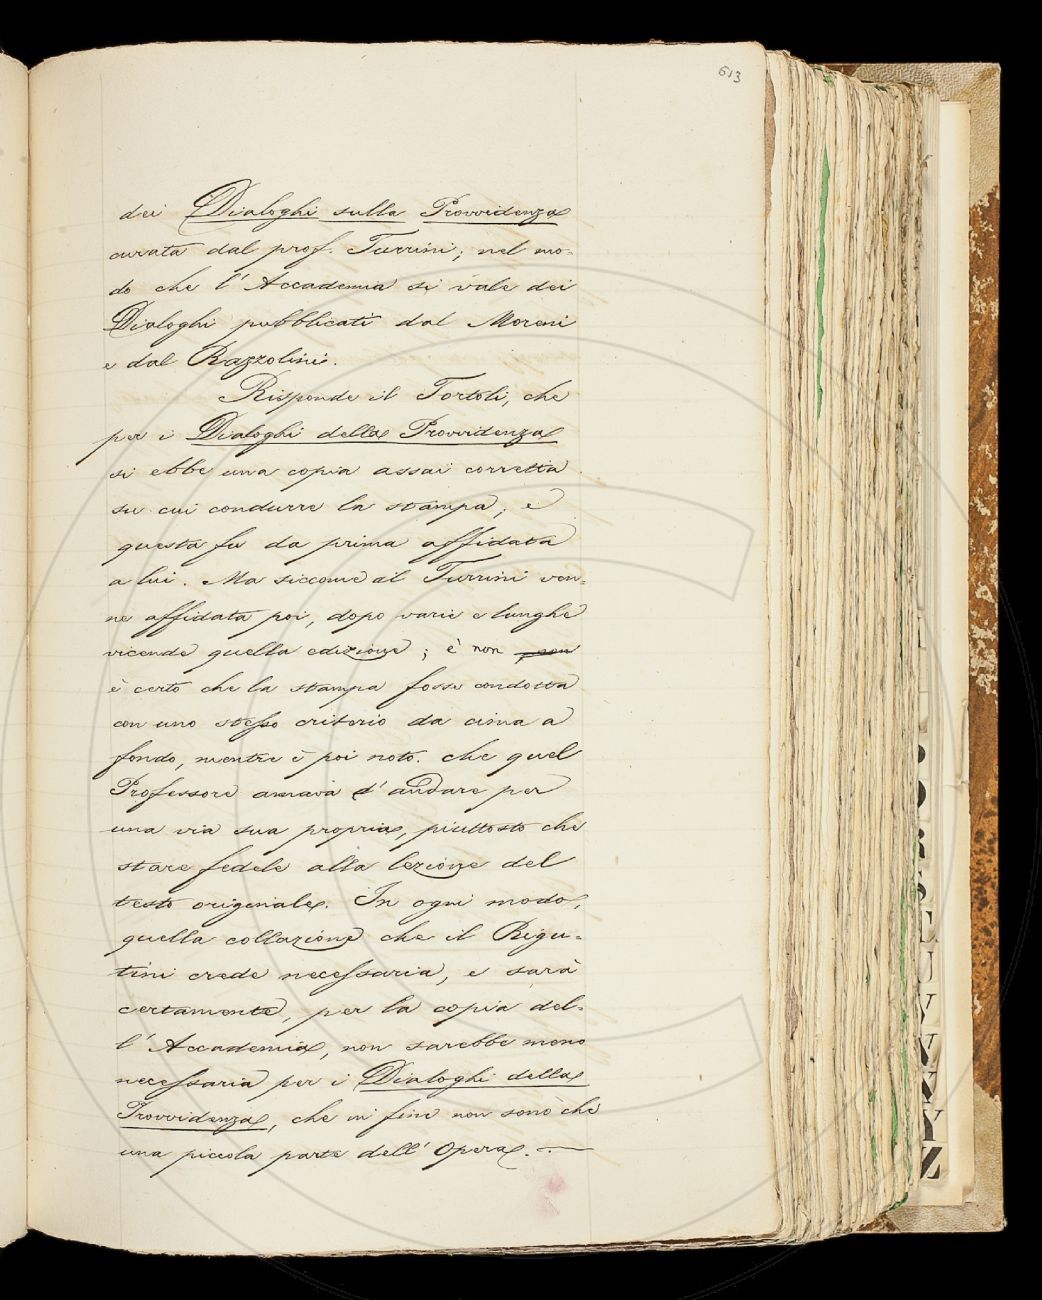 613
dei Dialoghi sulla Provvidenza
curata dal prof. Turrini; nel mo-
do che l'Accademia si vale dei
Dialoghi pubblicati dal Moreni
e dal Razzolini.
Risponde il Tortoli, che
per i Dialoghi della Provvidenza
si ebbe una copia assai corretta
su cui condurre la stampa; e
questa fu da prima affidata
a lui. Ma siccome al Turrini ven-
ne affidata poi, dopo varie e lunghe
vicende quella edizione; è non
è certo che la stampa fosse condotta
con uno stesso criterio da cima a
fondo, mentre è poi noto. che quel
Professore amava d'andare per
una via sua propria, piuttosto che
stare fedele alla lezione del
testo originale. In ogni modo,
quella collazione che il Rigu-
tini crede necessaria, e sarà
certamente, per la copia del-
l'Accademia, non sarebbe meno
necessaria per i Dialoghi della
Provvidenza, che in fine non sono che
una piccola parte dell'Opera. —